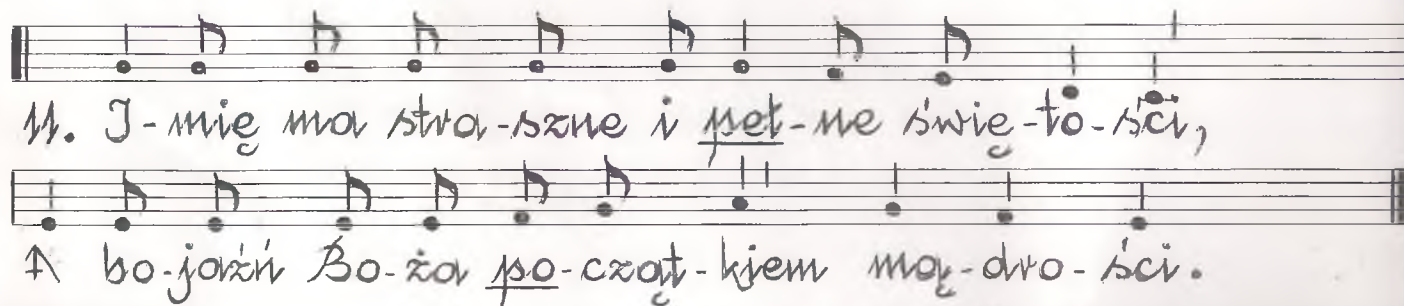 11. I-mię ma stra-szne i peł-ne świę-to-ści,
A bo-jaźń Bo-ża po-cząt-kiem mą-dro-ści.